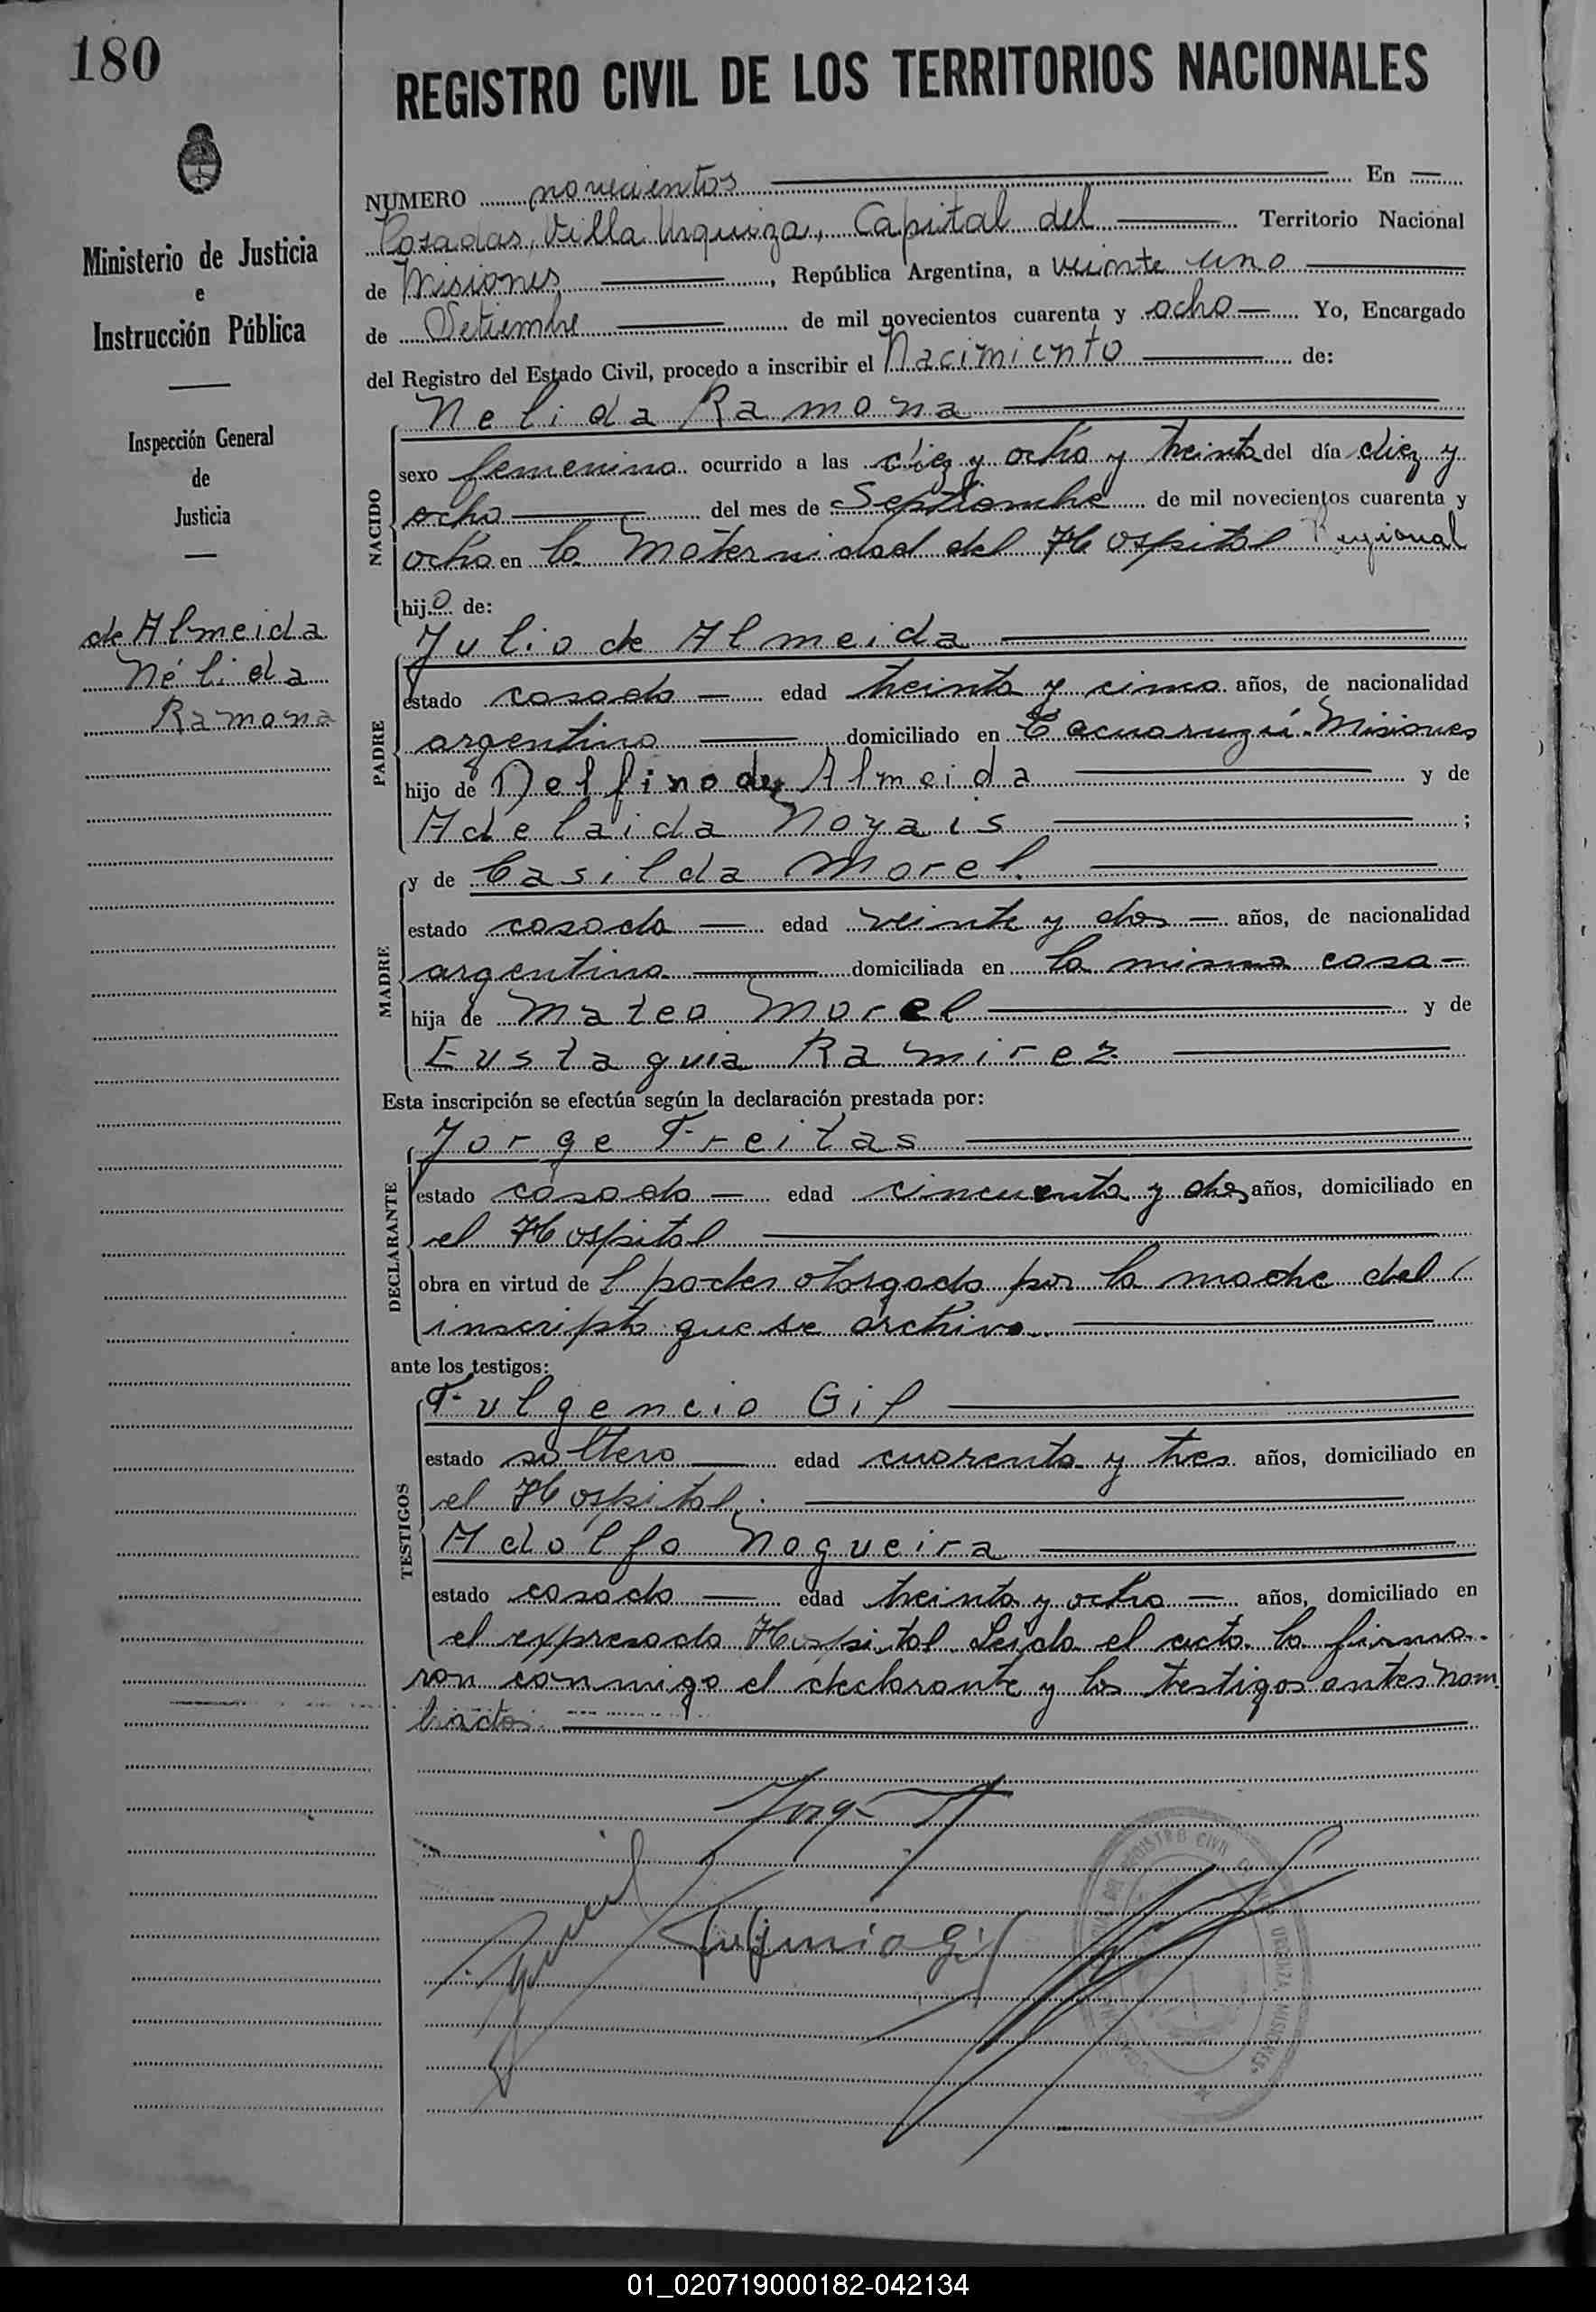 180
REGISTRO CIVIL DE LOS TERRITORIOS NACIONALES
Ministerio de Justicia
e
Instrucción Pública
Inspección General
de
Justicia
de Almeida
Nélida
Ramona
NUMERO novecientos En
Posadas, Villa Urquiza, Capital del Territorio Nacional
de Misiones, República Argentina, a veinte uno
de Setiembre de mil novecientos cuarenta y ocho Yo, Encargado
del Registro del Estado Civil, procedo a inscribir el Nacimiento de:
NACIDO
Nelida Ramona
sexo femenino ocurrido a las diez y ocho y treinta del día diez y
ocho del mes de Septiembre de mil novecientos cuarenta y
ocho en la Maternidad del Hospital Regional
hijo de:
PADRE
Julio de Almeida
estado casado edad treinta y cinco años, de nacionalidad
argentino domiciliado en Cacuaruzú. Misiones
hijo de Delfino de Almeida y de
Adelaida Noyais;
MADRE
y de Casilda Morel.
estado casada edad veinte y dos años, de nacionalidad
argentina domiciliada en la misma casa
hija de Mateo Morel y de
Eustaquia Ramirez
Esta inscripción se efectúa según la declaración prestada por:
DECLARANTE
Jorge Freitas
estado casado edad cincuenta y dos años, domiciliado en
el Hospital
obra en virtud de l poder otorgado por la madre del
inscripto que se archiva.
ante los testigos:
TESTIGOS
Fulgencio Gil
estado soltero edad cuarenta y tres años, domiciliado en
el Hospital.
Adolfo Nogueira
estado casado edad treinta y ocho años, domiciliado en
el expresado Hospital Leida el acta la firma-
ron conmigo el declarante y los testigos antes nom
brados.
Jorge
Fulgencio Gil
REGISTRO CIVIL URQUIZA, MISIONES
01_020719000182-042134